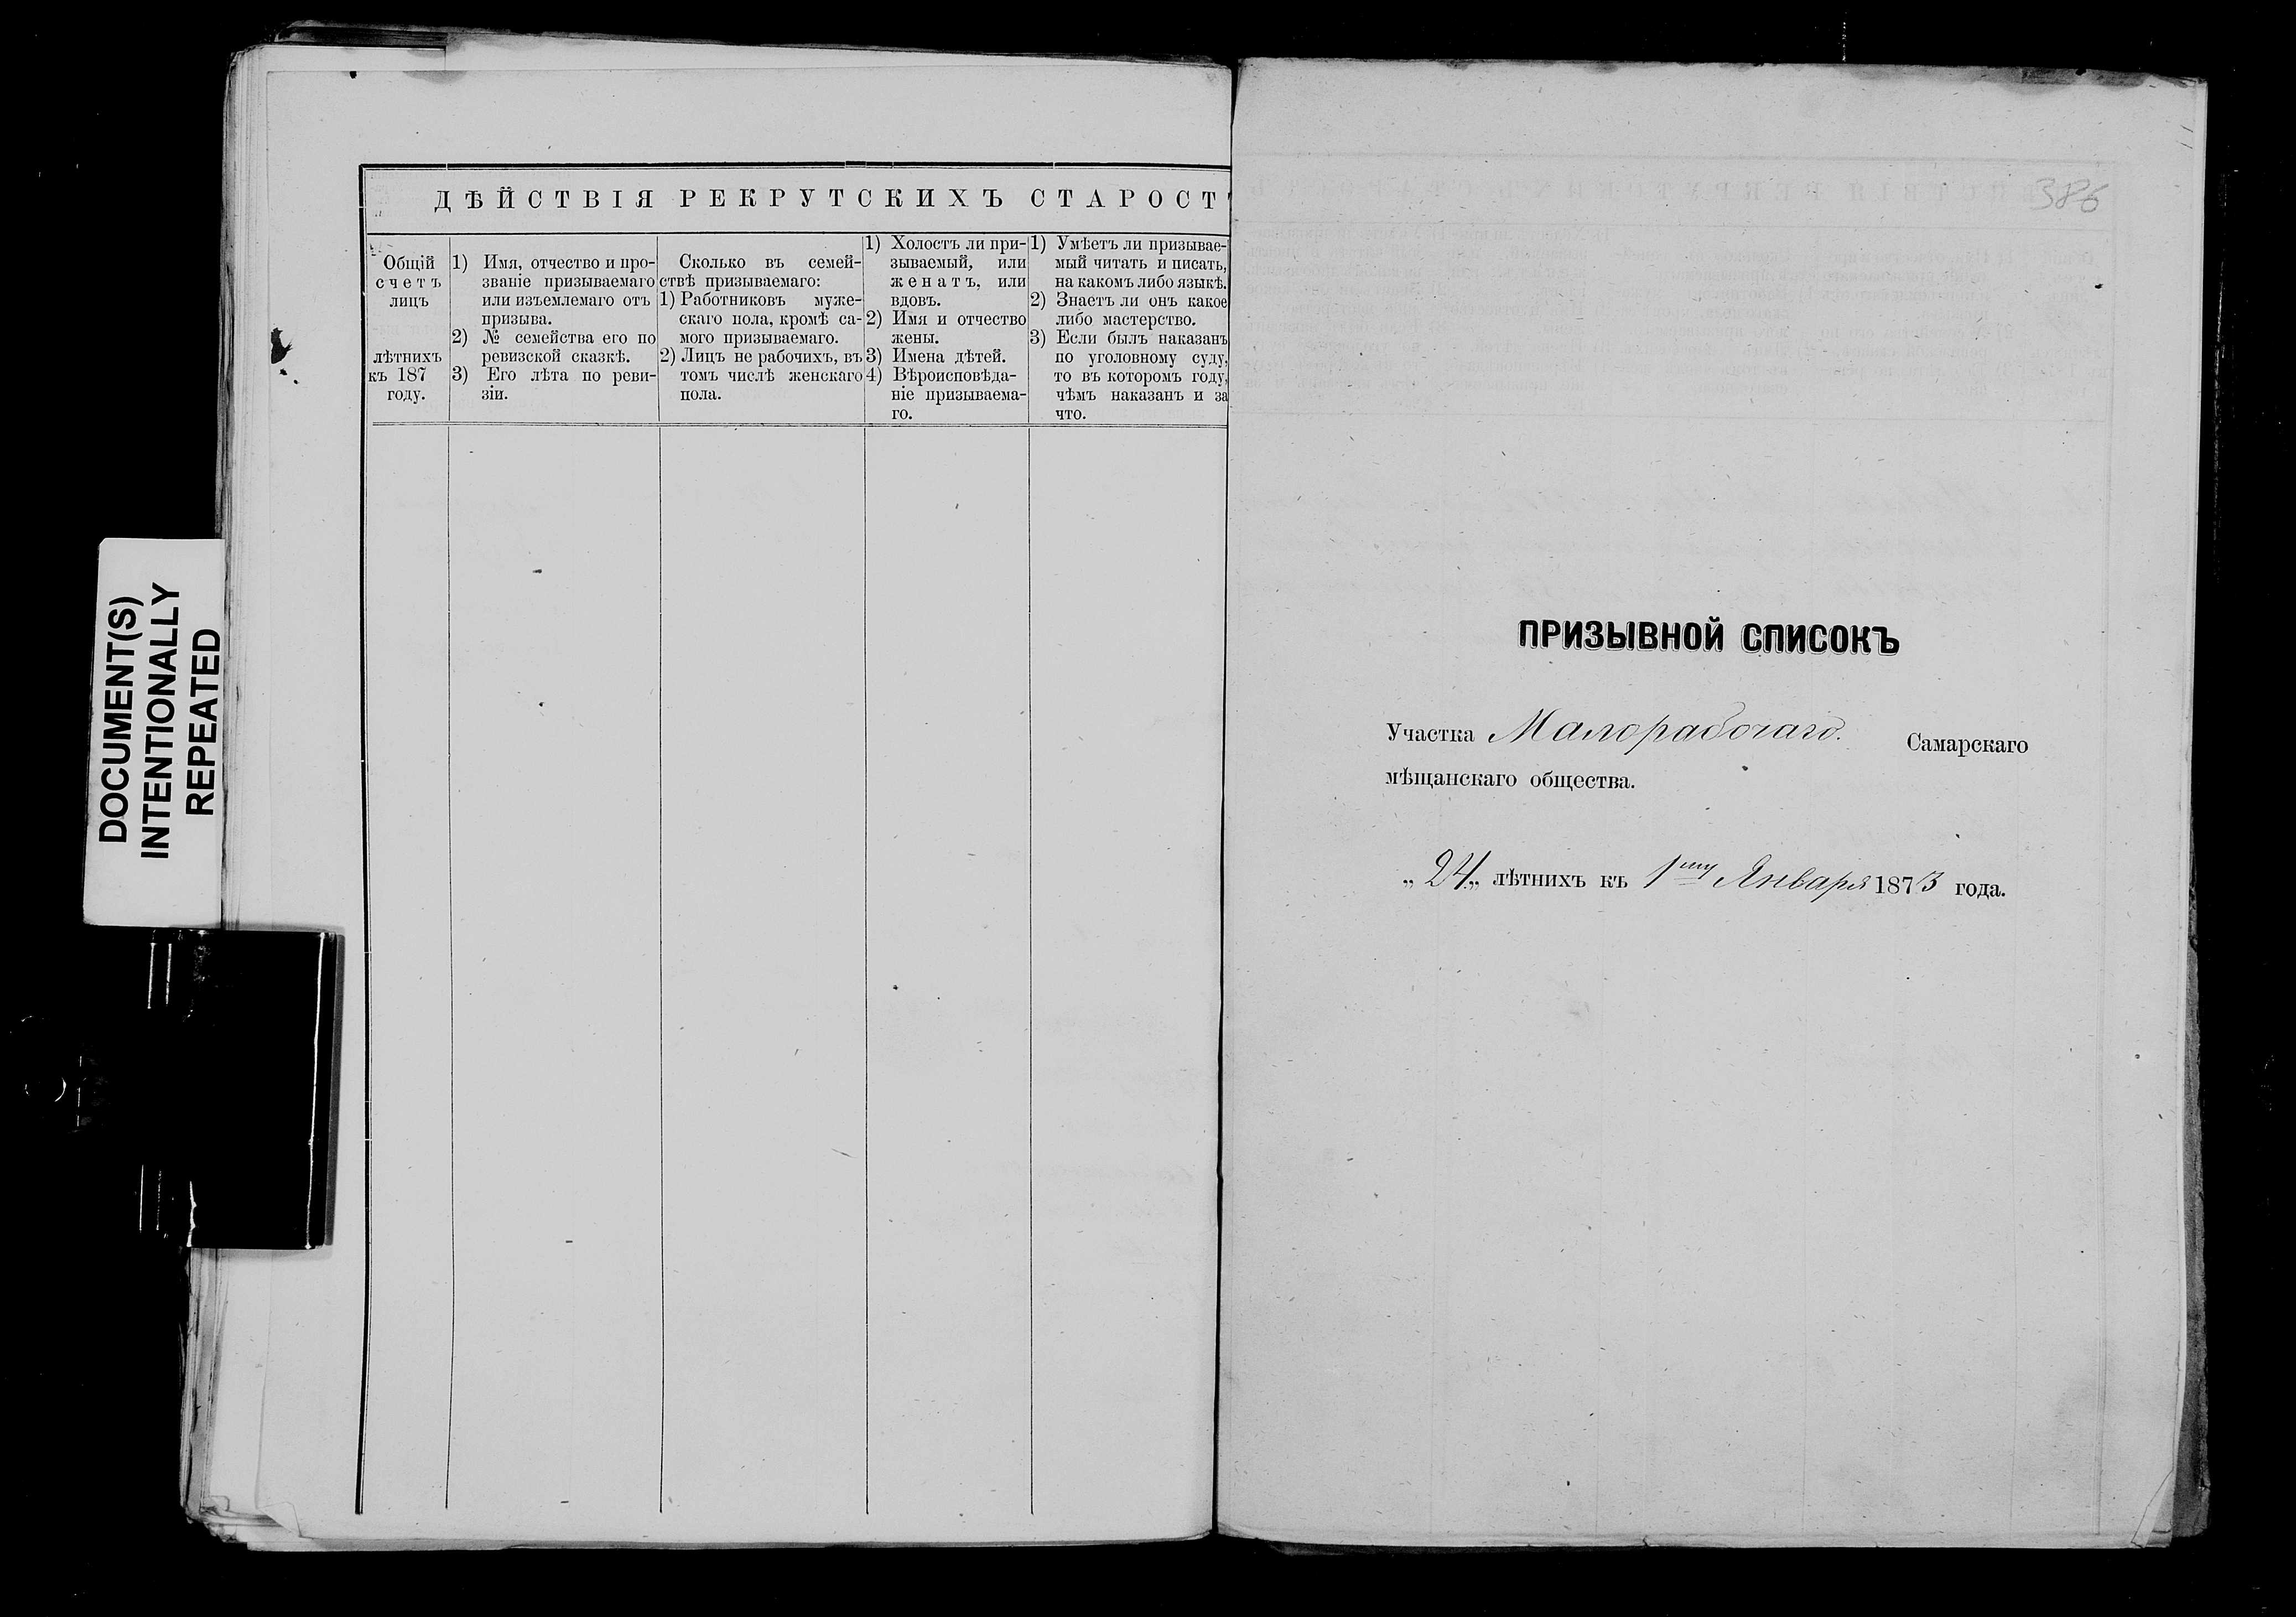 DOCUMENT(S)
INTENTIONALLY
REPEATED
ДѢЙСТВІЯ РЕКРУТСКИХЪ СТАРОСТ
Общій
счетъ
лицъ
лѣтнихъ
къ 187
году.
1) Имя, отчество и про-
званіе призываемаго
или изъемлемаго отъ
призыва.
2) № семейства его по
ревизской сказкѣ.
3) Его лѣта по реви-
зіи.
Сколько въ семей-
ствѣ призываемаго:
1) Работниковъ муже-
скаго пола, кромѣ са-
мого призываемаго.
2) Лицъ не рабочихъ, въ
томъ числѣ женскаго
пола.
1) Холостъ ли при-
зываемый, или
женатъ, или
вдовъ.
2) Имя и отчество
жены.
3) Имена дѣтей.
4) Вѣроисповѣда-
ніе призываема-
го.
1) Умѣетъ ли призывае-
мый читать и писать,
на какомъ либо языкѣ.
2) Знаетъ ли онъ какое
либо мастерство.
3) Если былъ наказанъ
по уголовному суду,
то въ которомъ году,
чѣмъ наказанъ и за
что.
386
ПРИЗЫВНОЙ СПИСОКЪ
Участка Малорабочаго. Самарскаго
мѣщанскаго общества.
„ 24 „ лѣтнихъ къ 1му Января 1873 года.